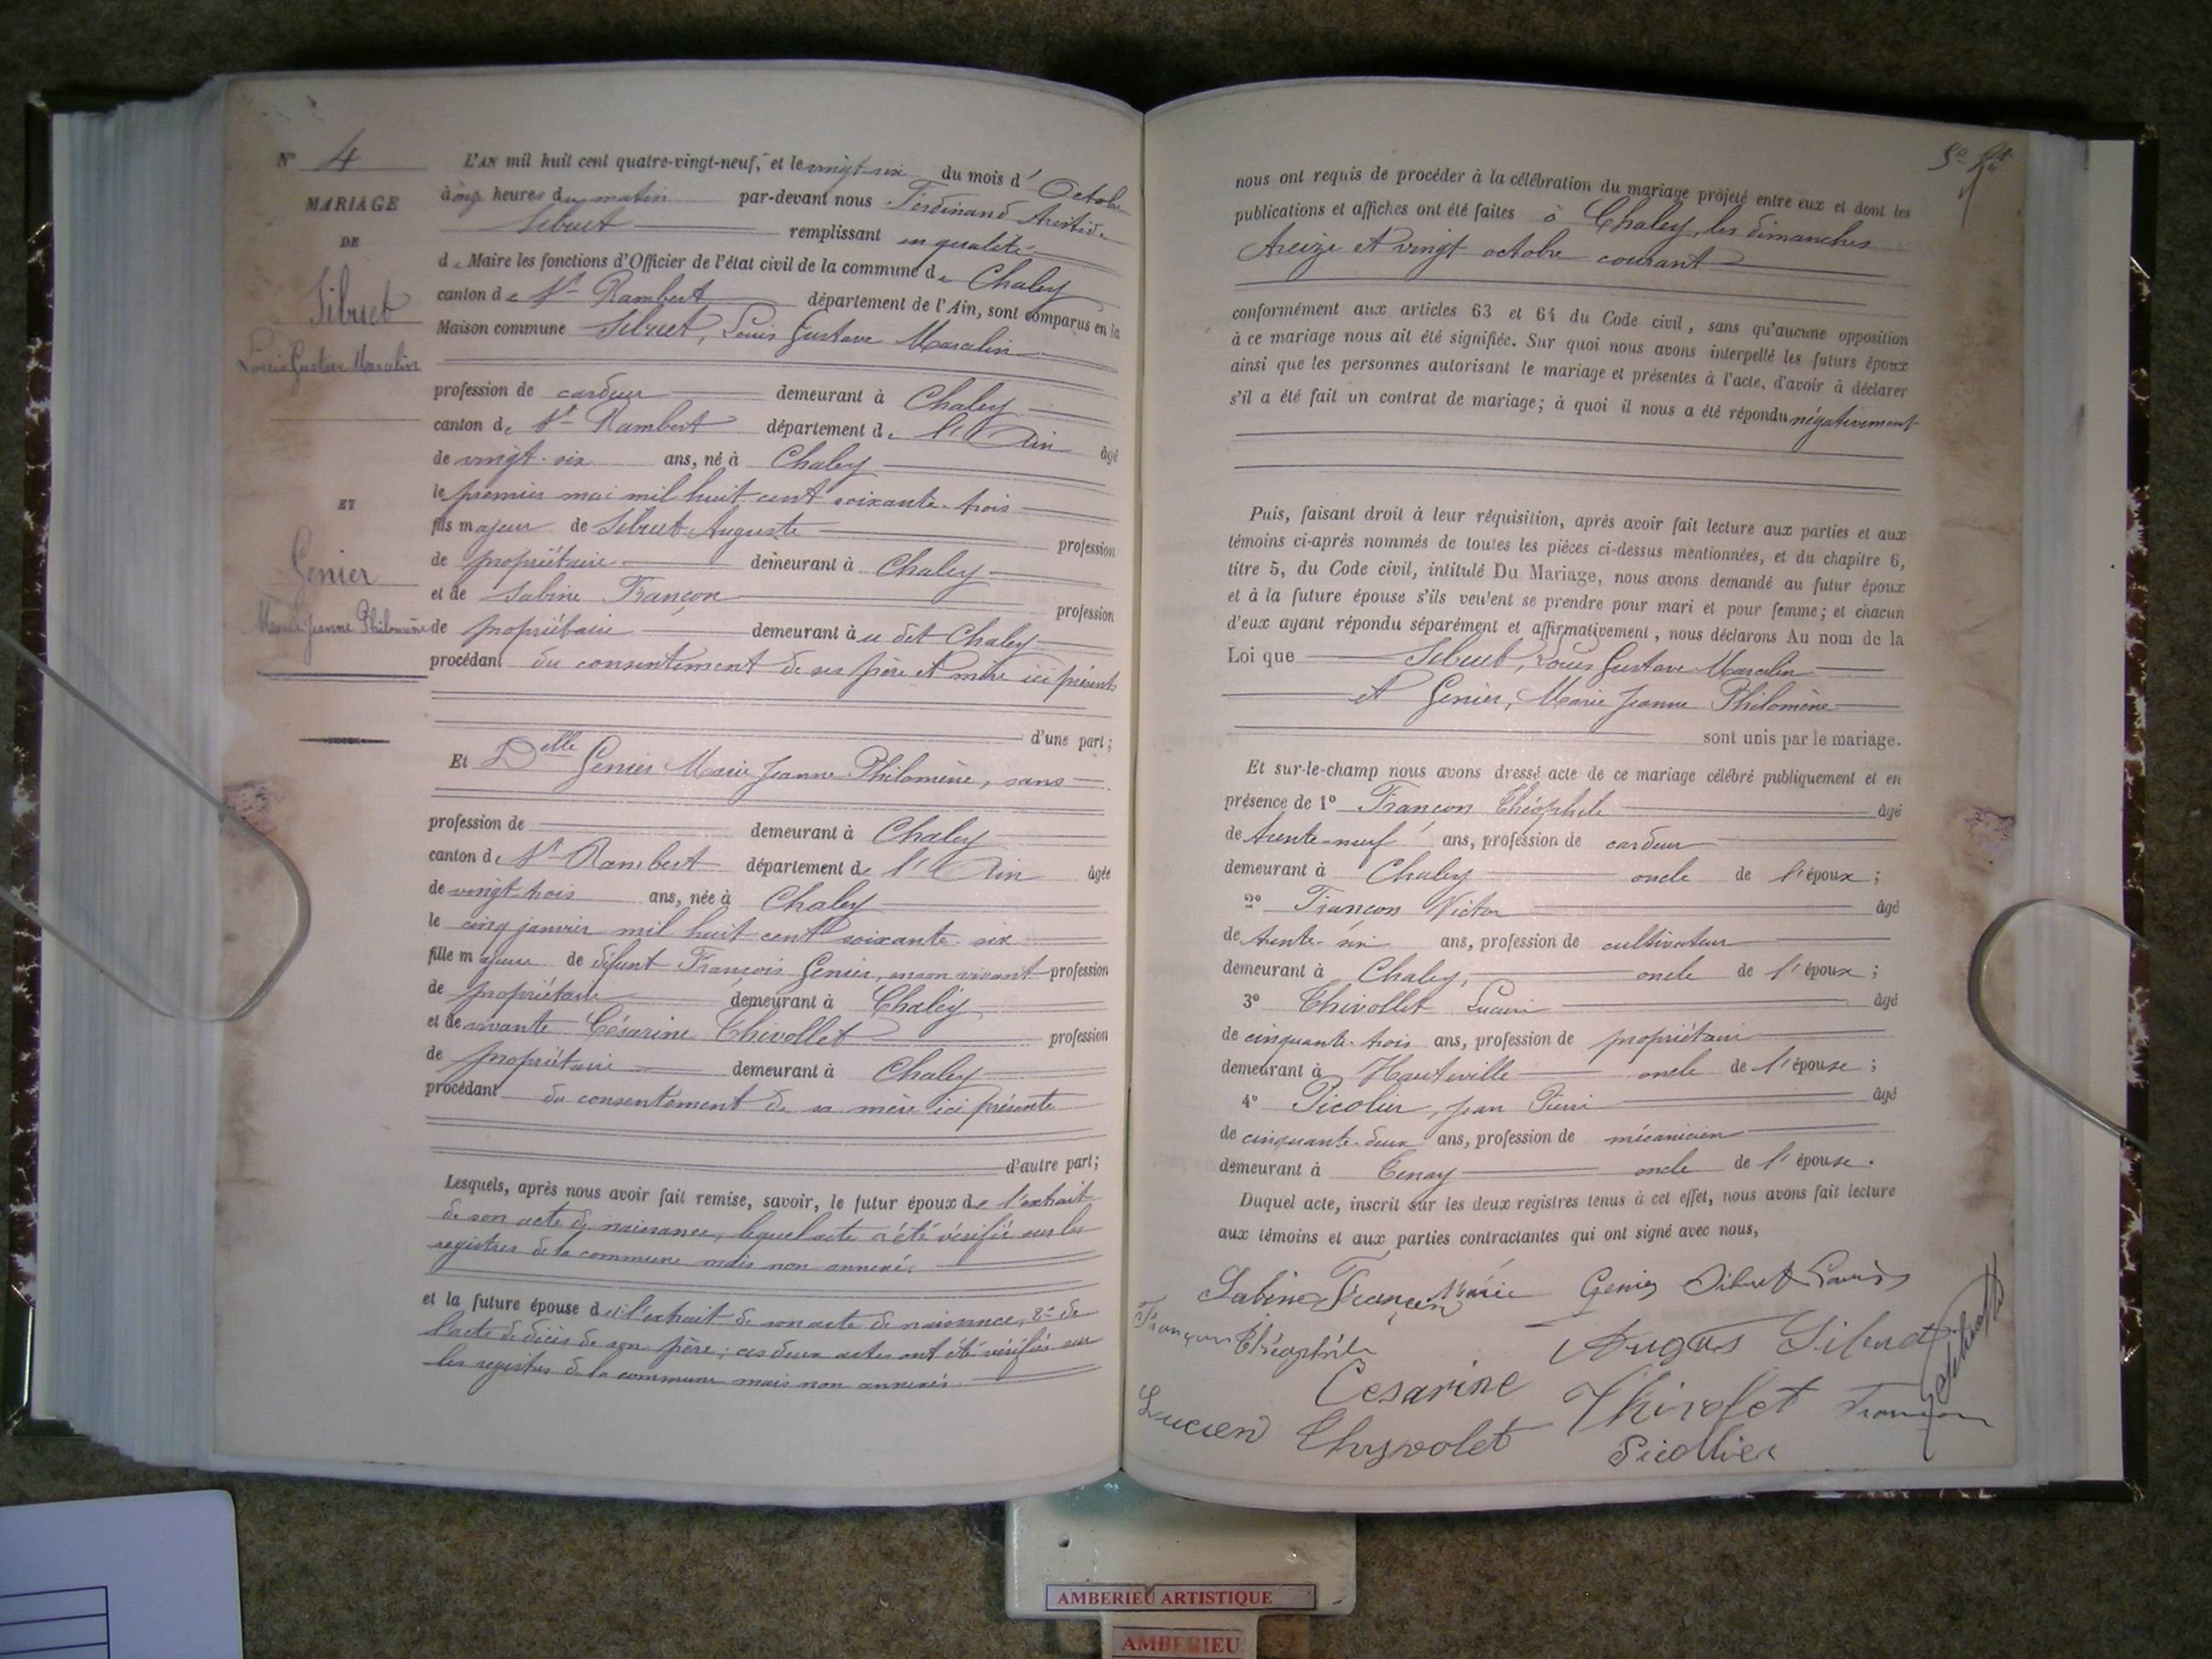 N° 4
MARIAGE
DE
Sibuet
Louis Gustave Marcelin
ET
Genier
Marie Jeanne Philomène
L'AN mil huit cent quatre-vingt-neuf, et le vingt-six du mois d' Octobre
à onze heures du matin par-devant nous Ferdinand Aristide
Sibuet remplissant en qualité
de Maire les fonctions d'Officier de l'état civil de la commune de Chaley
canton de St Rambert département de l'Ain, sont comparus en la
Maison commune Sibuet, Louis Gustave Marcelin
profession de cardeur demeurant à Chaley
canton de St Rambert département de l'Ain âgé
de vingt-six ans, né à Chaley
le premier mai mil huit cent soixante-trois
fils majeur de Sibuet Auguste profession
de propriétaire demeurant à Chaley
et de Sabine Françon profession
de propriétaire demeurant à u dit Chaley
procédant du consentement de ses père et mère ici présents
d'une part;
Et Delle Genier Marie Jeanne Philomène, sans
profession de demeurant à Chaley
canton de St Rambert département de l'Ain âgée
de vingt-trois ans, née à Chaley
le cinq janvier mil huit cent soixante-six
fille majeure de défunt François Genier, en son vivant profession
de propriétaire demeurant à Chaley
et de vivante Césarine Thivollet profession
de propriétaire demeurant à Chaley
procédant du consentement de sa mère ici présente
d'autre part;
Lesquels, après nous avoir fait remise, savoir, le futur époux de l'extrait
de son acte de naissance, lequel acte a été vérifié sur les
registres de la commune mais non annexé.
et la future épouse de l'extrait de son acte de naissance, 2° de
l'acte de décès de son père; ces deux actes ont été vérifiés sur
les registres de la commune mais non annexés.
nous ont requis de procéder à la célébration du mariage projeté entre eux et dont les
publications et affiches ont été faites à Chaley, les dimanches
treize et vingt octobre courant
conformément aux articles 63 et 64 du Code civil, sans qu'aucune opposition
à ce mariage nous ait été signifiée. Sur quoi nous avons interpellé les futurs époux
ainsi que les personnes autorisant le mariage et présentes à l'acte, d'avoir à déclarer
s'il a été fait un contrat de mariage; à quoi il nous a été répondu négativement
Puis, faisant droit à leur réquisition, après avoir fait lecture aux parties et aux
témoins ci-après nommés de toutes les pièces ci-dessus mentionnées, et du chapitre 6,
titre 5, du Code civil, intitulé Du Mariage, nous avons demandé au futur époux
et à la future épouse s'ils veulent se prendre pour mari et pour femme; et chacun
d'eux ayant répondu séparément et affirmativement, nous déclarons Au nom de la
Loi que Sibuet, Louis Gustave Marcelin
et Genier, Marie Jeanne Philomène
sont unis par le mariage.
Et sur-le-champ nous avons dressé acte de ce mariage célébré publiquement et en
présence de 1° Françon Théophile âgé
de trente-neuf ans, profession de cardeur
demeurant à Chaley oncle de l'époux;
2° Françon Victor âgé
de trente-six ans, profession de cultivateur
demeurant à Chaley, oncle de l'époux;
3° Thivollet Lucien âgé
de cinquante-trois ans, profession de propriétaire
demeurant à Hauteville oncle de l'épouse;
4° Picolier, Jean Pierre âgé
de cinquante-deux ans, profession de mécanicien
demeurant à Tenay oncle de l'épouse.
Duquel acte, inscrit sur les deux registres tenus à cet effet, nous avons fait lecture
aux témoins et aux parties contractantes qui ont signé avec nous,
Sabine Françon Marie Genier Sibuet Louis
Françon Théophile Augus Sibuet
Cesarine Thivolet Françon
Lucien Thyvolet Picollier
AMBERIEU ARTISTIQUE
AMBERIEU